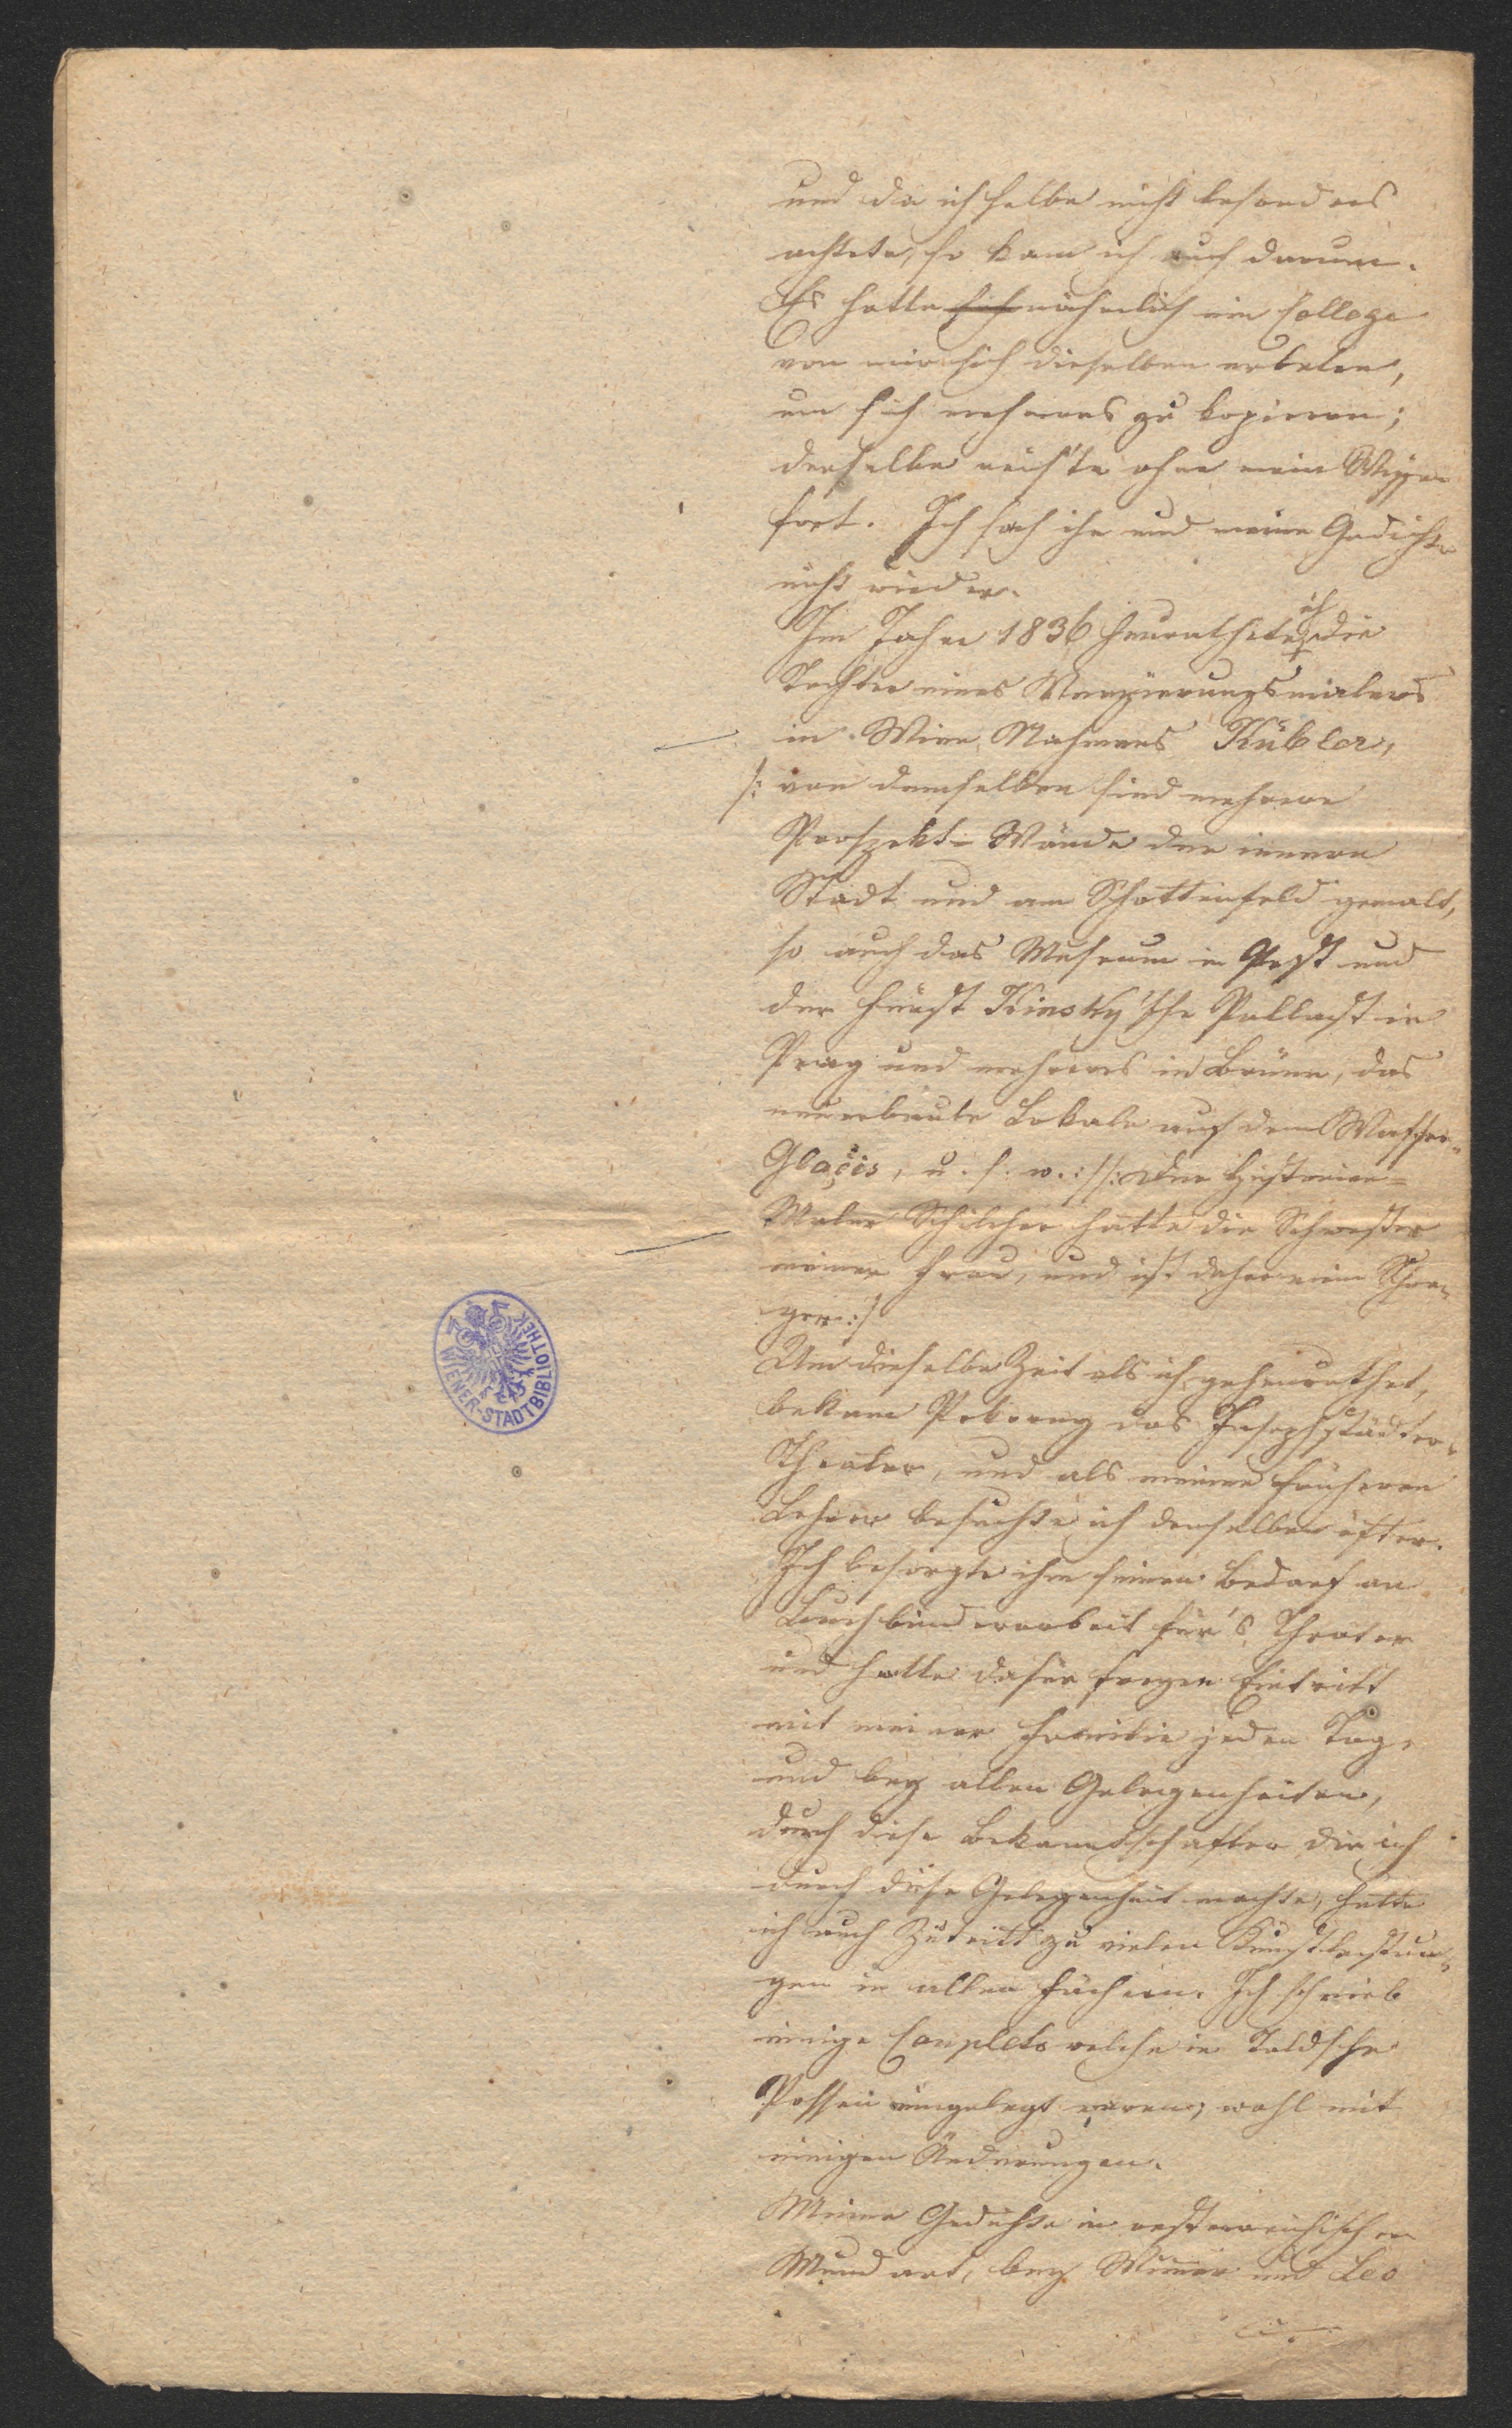 und da ich selbe nicht besonders
achtete, so kam ich auch darum.
Es hatte sich nähmlich ein College
von mir sich dieselben erbeten,
um sich mehreres zu kopieren;
derselbe reis'te ohne mein Wissen
fort. Ich sah ihn und meine Gedichte
nicht wieder.
Im Jahre 1836 heurathete ich die
Tochter eines Verzierungsmalers
in Wien, Nahmens Kübler,
/: von demselben sind mehrere
Prospekt-Wände der innern
Stadt und am Schottenfeld gemalt,
so auch das Museum in Pest und
der Fürst Kinsky'sche Pallast in
Prag und mehreres in Brünn, das
neuerbaute Lokale auf dem Wasser-
Glacis, u. s. w. :/ /: Der Historien-
Maler Schilcher hatte die Schwester
meiner Frau, und ist daher mein Schwa-
ger :/
Um dieselbe Zeit als ich geheurathet,
bekam Pokorny das Josephstädter-
Theater, und als meinen früheren
Lehrer besuchte ich denselben öfter.
Ich besorgte ihm seinen Bedarf an
Buchbinderarbeit für's Theater
und hatte dafür freyen Eintritt
mit meiner Familie jeden Tag,
und bey allen Gelegenheiten,
durch diese Bekanntschaften die ich
durch diese Gelegenheit machte, hatte
ich auch Zutritt zu vielen Kunstleistun-
gen in allen Fächern. Ich schrieb
einige Couplets welche in Toldsche
Possen eingelegt waren, wohl mit
einigen Änderungen.
Meine Gedichte in oesterreichischer
Mundart, bey Wimmer und Leo
WIENER-STADTBIBLIOTHEK